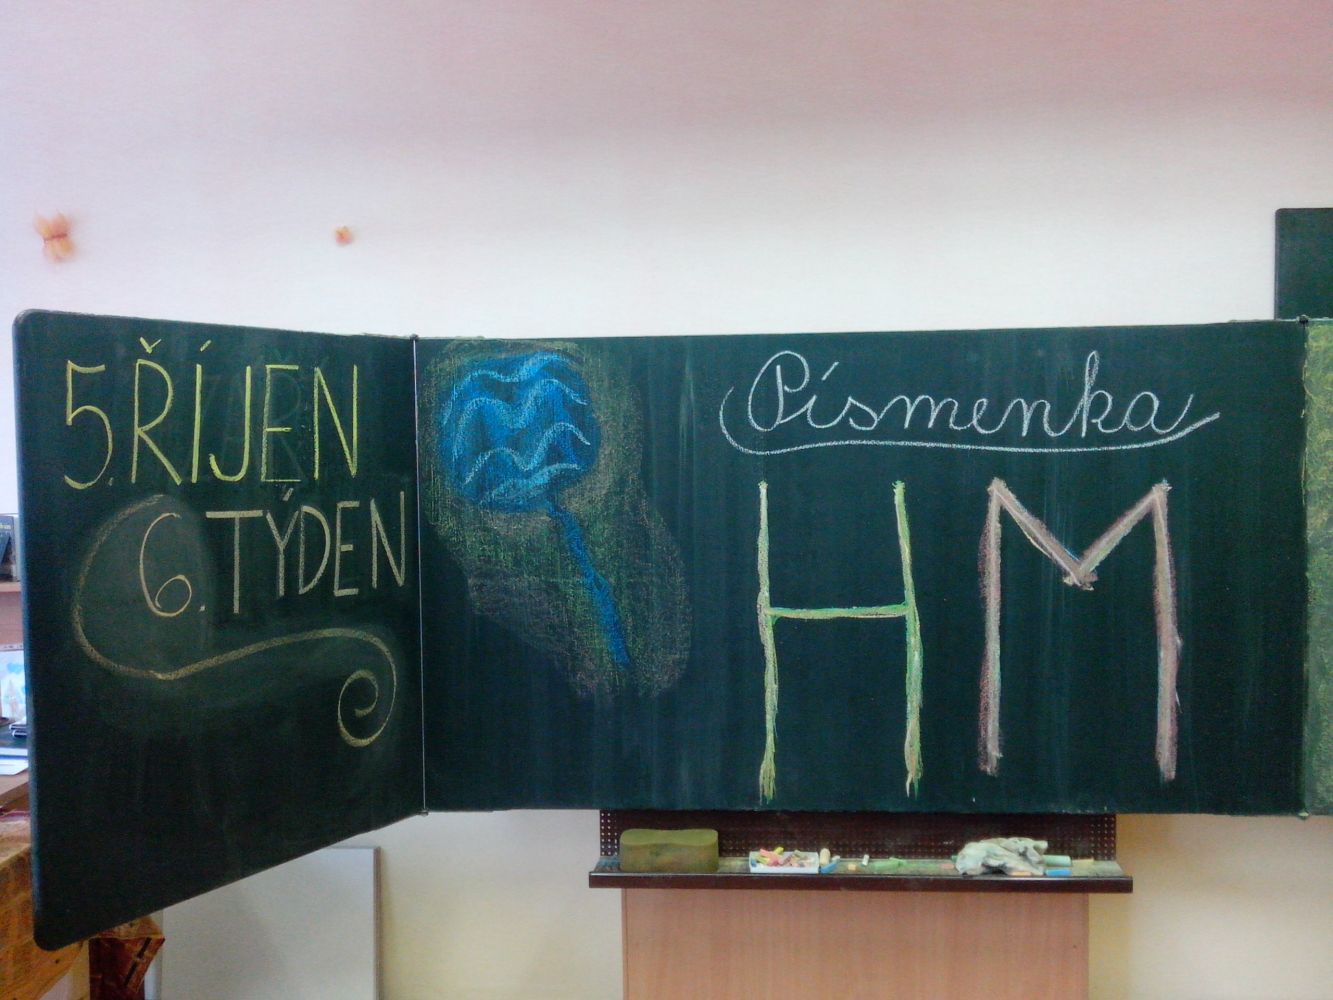 5. ŘÍJEN
6. TÝDEN
Písmenka
H M